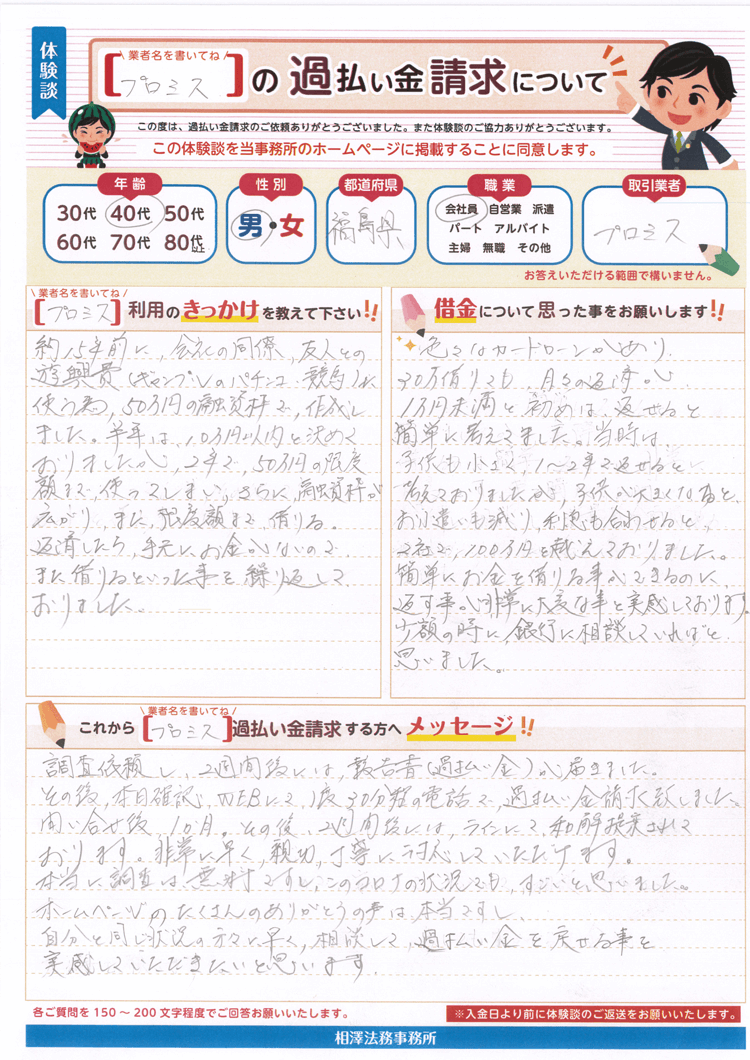 体験談
\ 業者名を書いてね /
[プロミス]の過払い金請求について
この度は、過払い金請求のご依頼ありがとうございました。また体験談のご協力ありがとうございます。
この体験談を当事務所のホームページに掲載することに同意します。
年齢
30代 40代 50代
60代 70代 80代以上
性別
男・女
都道府県
福島県
職業
会社員 自営業 派遣
パート アルバイト
主婦 無職 その他
取引業者
プロミス
お答えいただける範囲で構いません。
\ 業者名を書いてね /
[プロミス]利用のきっかけを教えて下さい!!
約15年前に、会社の同僚、友人との
遊興費(ギャンブルのパチンコ、競馬)に
使う為、50万円の融資枠で、作成し
ました。半年は、10万円以内と決めて
おりましたが、2年で、50万円の限度
額まで、使ってしまい、さらに、融資枠が
広がり、また、限度額まで借りる。
返済したら、手元にお金がないので、
また借りるといった事を繰り返して
おりました。
借金について思った事をお願いします!!
色々なカードローンがあり、
30万借りても、月々の返済が、
1万円未満と初めは、返せると
簡単に考えてました。当時は、
子供も小さく、1〜2年で返せると
考えておりましたが、子供が大きくなると、
お小遣いも減り、利息も合わせると、
2社で、100万円を超えておりました。
簡単にお金を借りる事ができるのに、
返す事が非常に大変な事と実感しております。
少額の時に、銀行に相談していればと
思いました。
\ 業者名を書いてね /
これから[プロミス]過払い金請求する方へメッセージ!!
調査依頼し、2週間後には、報告書(過払い金)が届きました。
その後、本日確認、WEBにて、1度30分程の電話で、過払い金請求致しました。
問い合せ後、1か月。その後、2週間後には、ラインにて、和解提案されて
おります。非常に早く、親切、丁寧に対応していただけます。
本当に調査は、無料ですし、このコロナの状況でも、すごいと思いました。
ホームページのたくさんのありがとうの声は、本当ですし、
自分と同じ状況の方々に早く、相談して、過払い金を戻せる事を
実感していただきたいと思います。
各ご質問を150〜200文字程度でご回答お願いいたします。
※入金日より前に体験談のご返送をお願いいたします。
相澤法務事務所